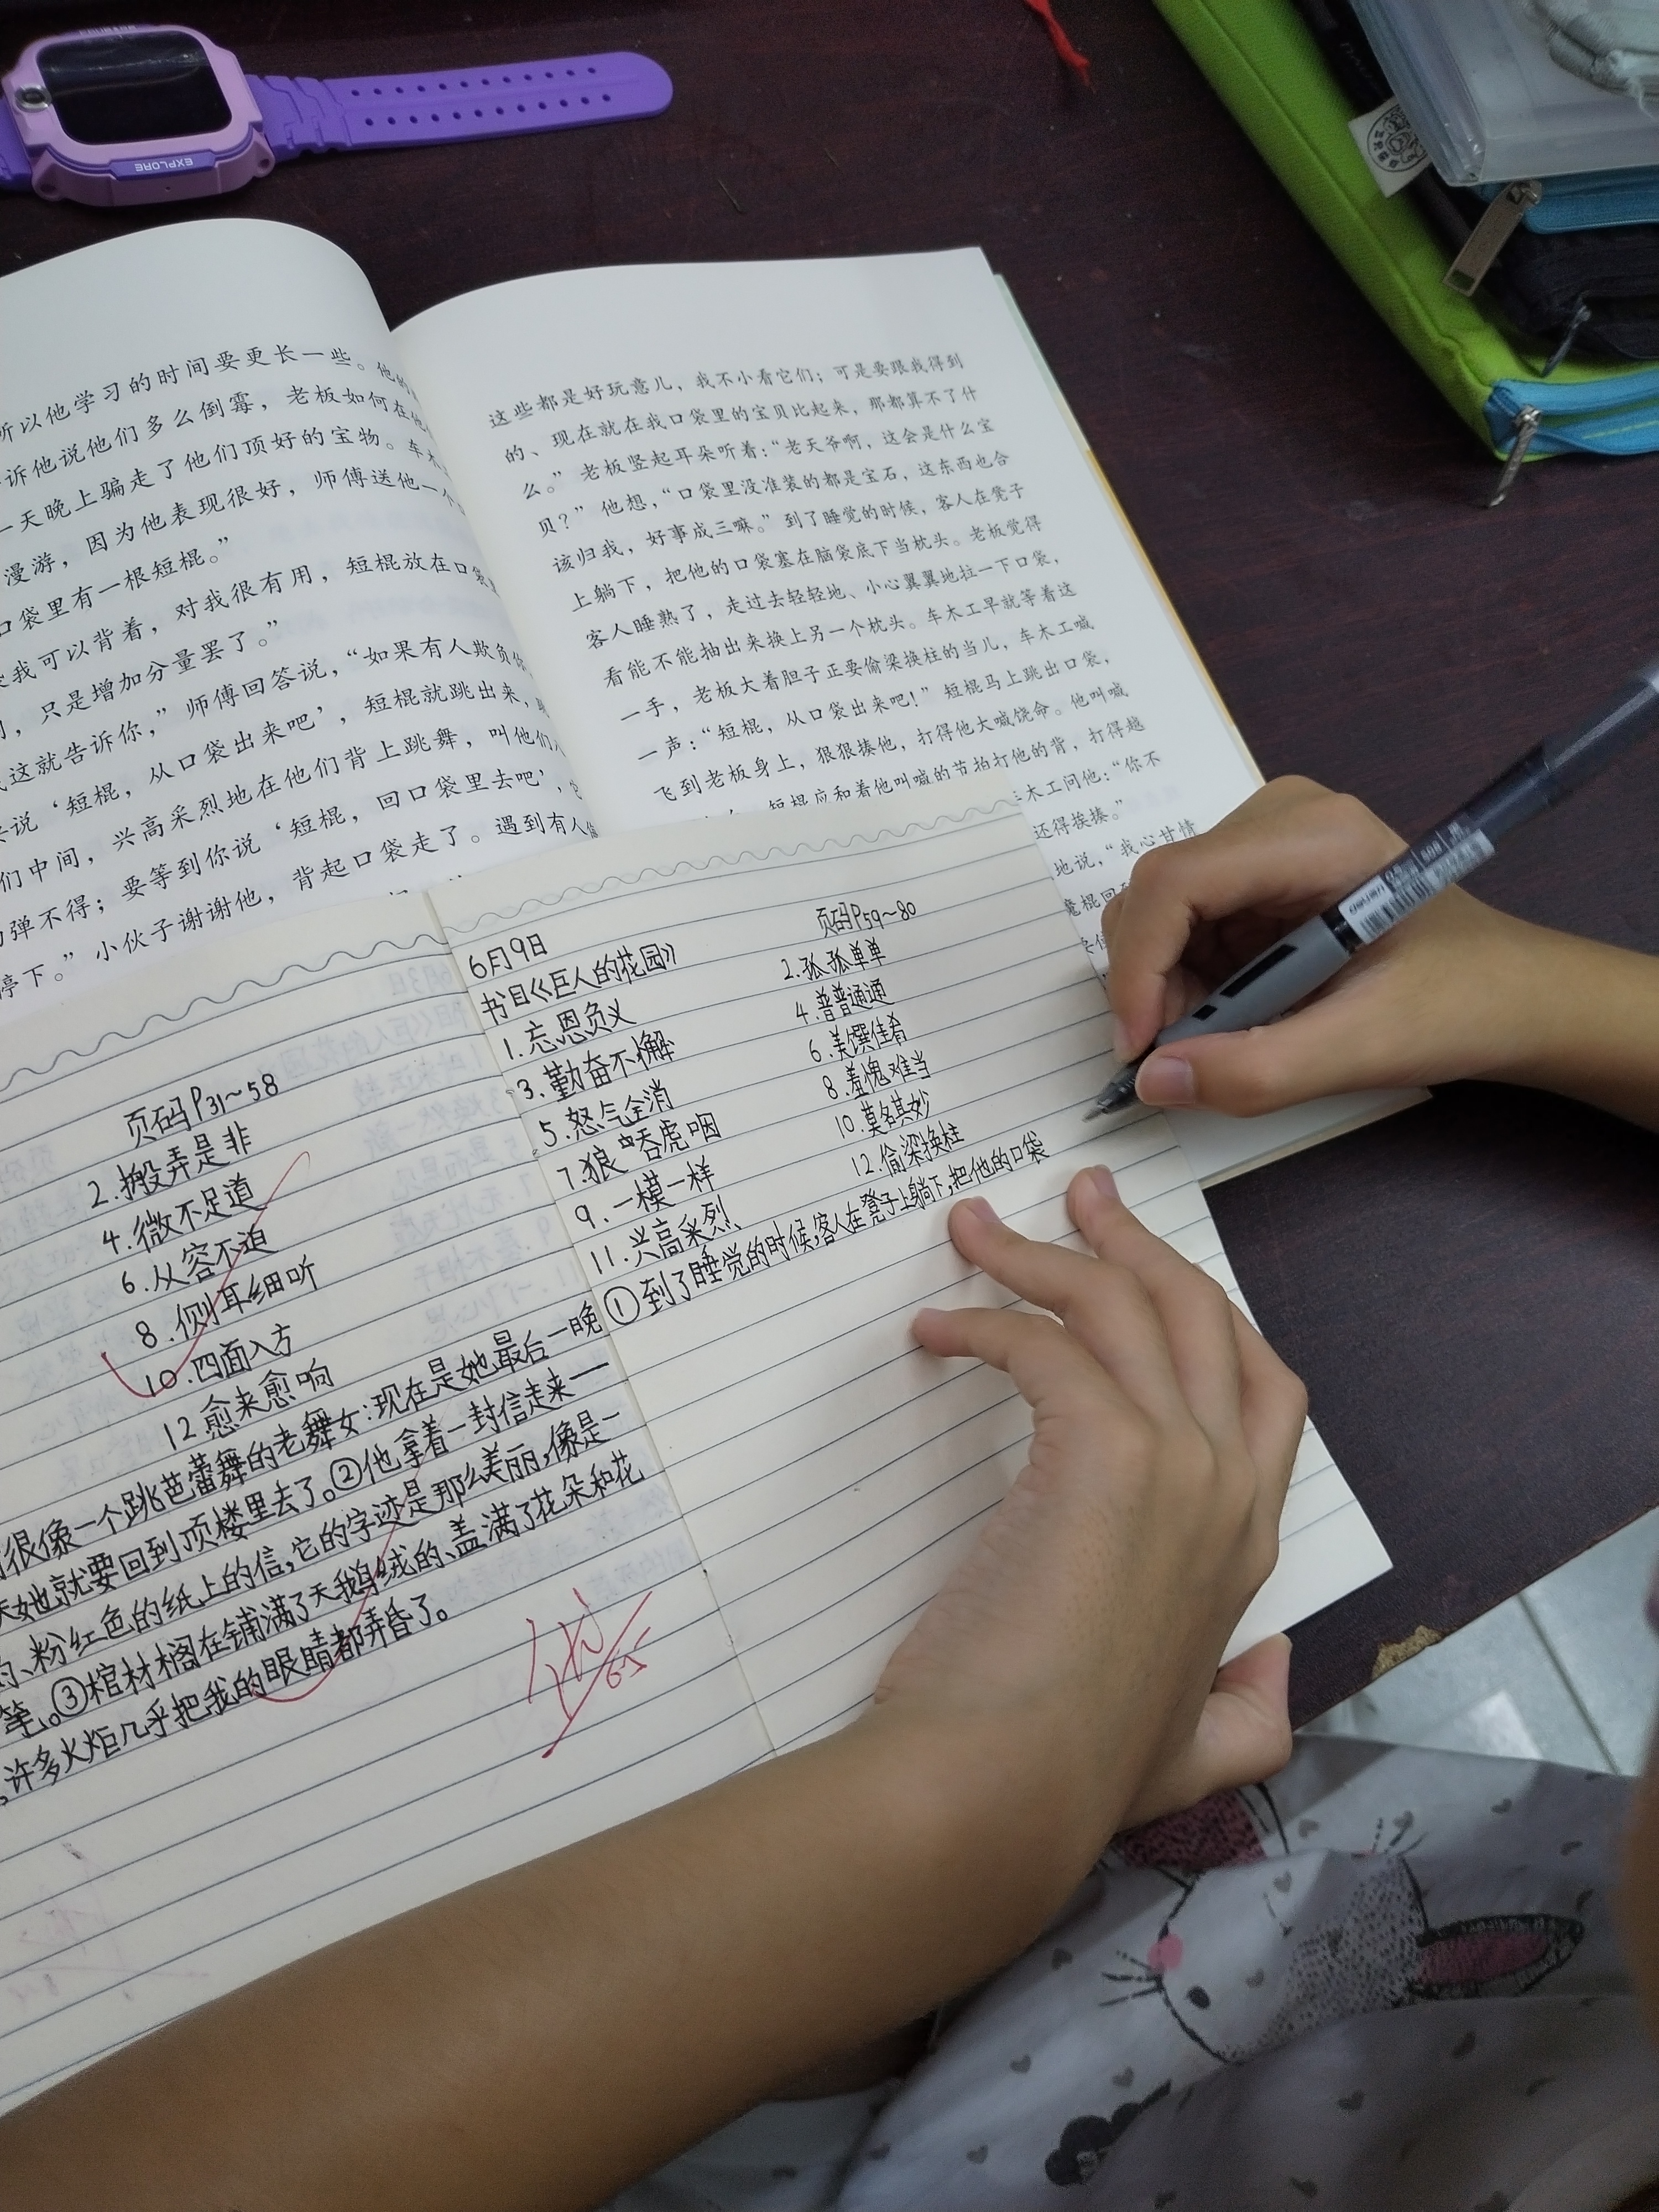 EXPLORE
所以他学习的时间要更长一些。他的
诉他说他们多么倒霉，老板如何在他
一天晚上骗走了他们顶好的宝物。车木
漫游，因为他表现很好，师傅送他一个
口袋里有一根短棍。”
我可以背着，对我很有用，短棍放在口袋
，只是增加分量罢了。”
这就告诉你，”师傅回答说，“如果有人欺负你
说‘短棍，从口袋出来吧’，短棍就跳出来，
们中间，兴高采烈地在他们背上跳舞，叫他们
弹不得；要等到你说‘短棍，回口袋里去吧’，它
停下。”小伙子谢谢他，背起口袋走了。遇到有人
这些都是好玩意儿，我不小看它们；可是要跟我得到
的、现在就在我口袋里的宝贝比起来，那都算不了什
么。”老板竖起耳朵听着：“老天爷啊，这会是什么宝
贝？”他想，“口袋里没准装的都是宝石，这东西也合
该归我，好事成三嘛。”到了睡觉的时候，客人在凳子
上躺下，把他的口袋塞在脑袋底下当枕头。老板觉得
客人睡熟了，走过去轻轻地、小心翼翼地拉一下口袋，
看能不能抽出来换上另一个枕头。车木工早就等着这
一手，老板大着胆子正要偷梁换柱的当儿，车木工喊
一声：“短棍，从口袋出来吧！”短棍马上跳出口袋，
飞到老板身上，狠狠揍他，打得他大喊饶命。他叫喊
短棍应和着他叫喊的节拍打他的背，打得越
木工问他：“你不
还得挨揍。”
地说，“我心甘情
魔棍回
页码P31~58
2.搬弄是非
4.微不足道
6.从容不迫
8.侧耳细听
10.四面八方
12.愈来愈响
很像一个跳芭蕾舞的老舞女:现在是她最后一晚
天她就要回到顶楼里去了。②他拿着一封信走来一
、粉红色的纸上的信,它的字迹是那么美丽,像是一
等。③棺材搁在铺满了天鹅绒的、盖满了花朵和花
,许多火炬几乎把我的眼睛都弄昏了。
优
6.5
6月9日
页码P59~80
书目《巨人的花园》
1.忘恩负义
2.孤孤单单
3.勤奋不懈
4.普普通通
5.怒气全消
6.美馔佳肴
7.狼吞虎咽
8.羞愧难当
9.一模一样
10.莫名其妙
11.兴高采烈
12.偷梁换柱
①到了睡觉的时候,客人在凳子上躺下,把他的口袋